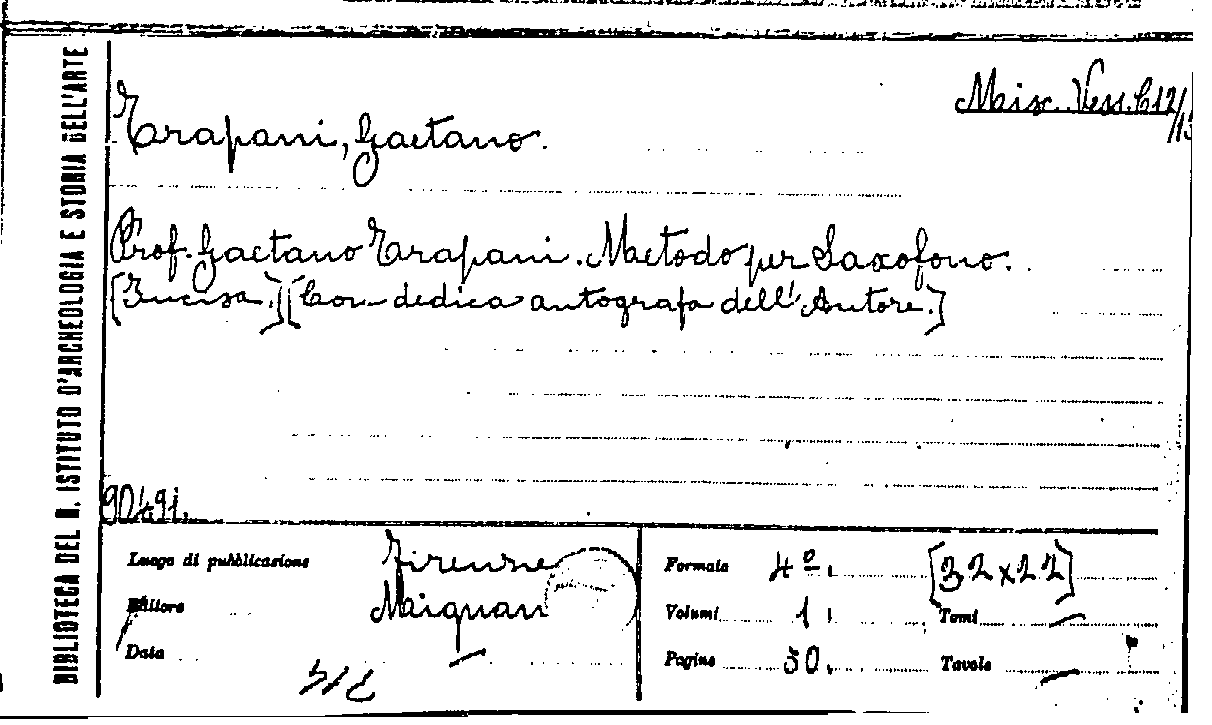 BIBLIOTECA DEL R. ISTITUTO D'ARCHEOLOGIA E STORIA DELL'ARTE
Misc. Vess. C 12/
Trapani, Gaetano.
Prof. Gaetano Trapani. Metodo per Saxofono.
[Incisa.] [Con dedica autografa dell'Autore.]
90491.
Luogo di pubblicazione Firenze
Editore Maignan
Data —
Formato 4º. [32 x 22]
Volumi 1. Tomi —
Pagine 50. Tavole —